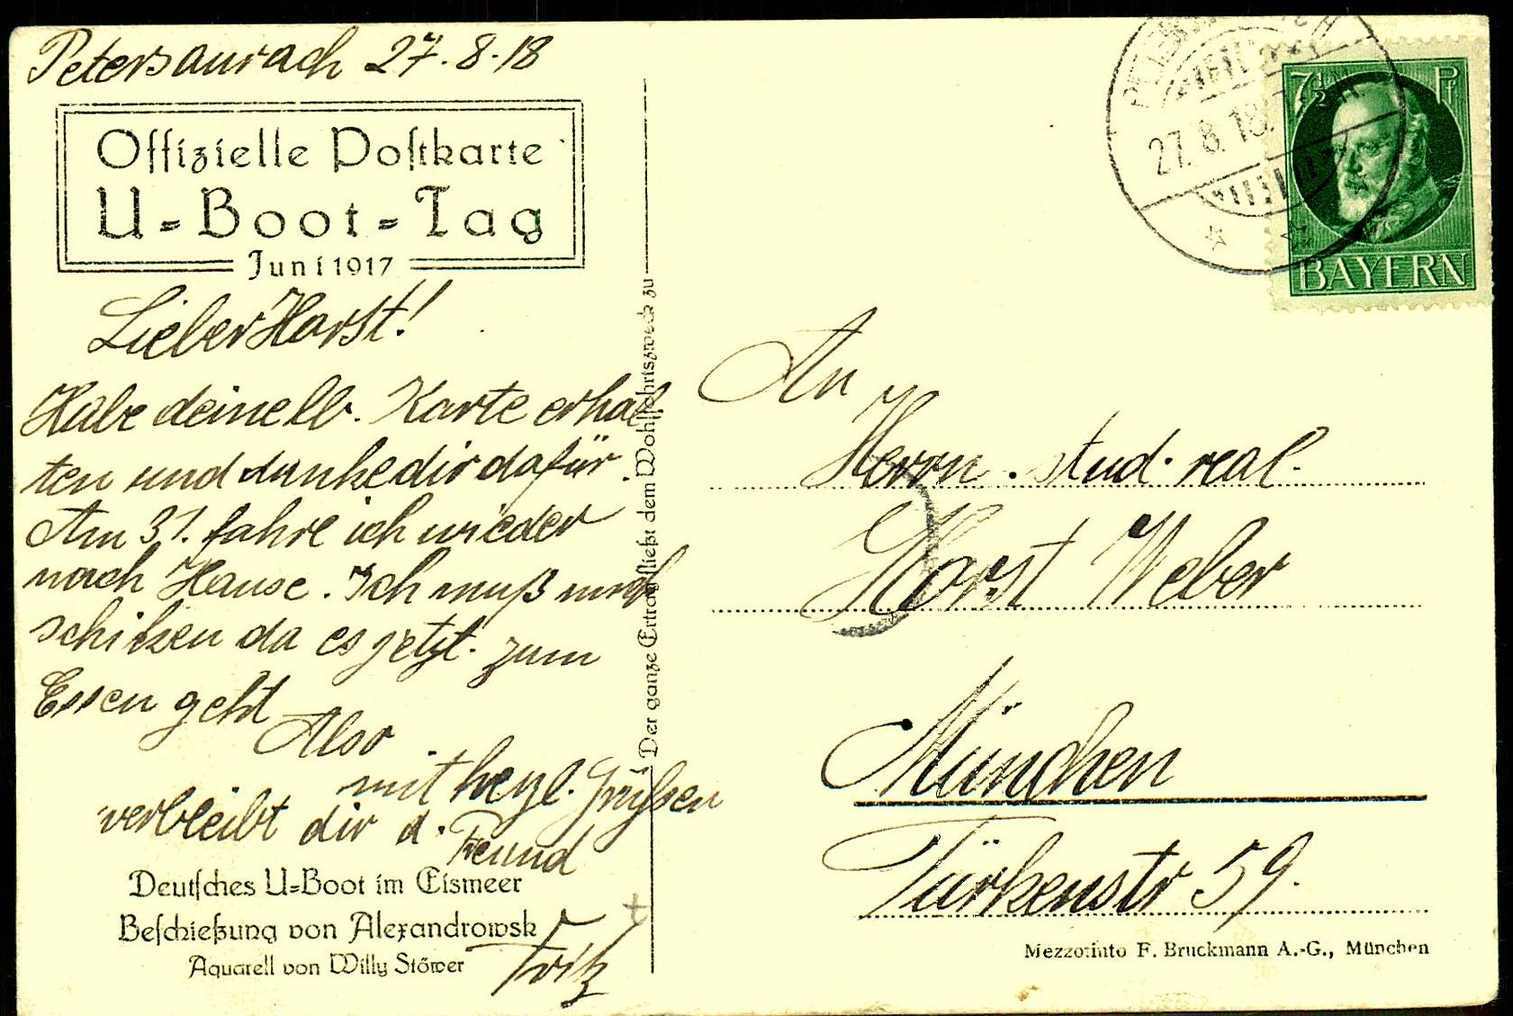 Petersaurach 27.8.18
Offizielle Poſtkarte
U=Boot=Tag
Juni 1917
Lieber Horst!
Habe deine lb. Karte erhal
ten und danke dir dafür.
Am 31. fahre ich wieder
nach Hause. Ich muß mich
schiken da es jetzt zum
Essen geht
Also
mit herzl. Grüßen
verbleibt dir d. Freund
Fritz
Deutſches U=Boot im Eismeer
Beſchießung von Alexandrowsk
Aquarell von Willy Stöwer
Der ganze Ertrag fließt dem Wohlfahrtszweck zu
27.8.18.
7½ Pf
BAYERN
An
Herrn stud. real.
Horst Weber
München
Türkenstr 59.
Mezzotinto F. Bruckmann A.-G., München